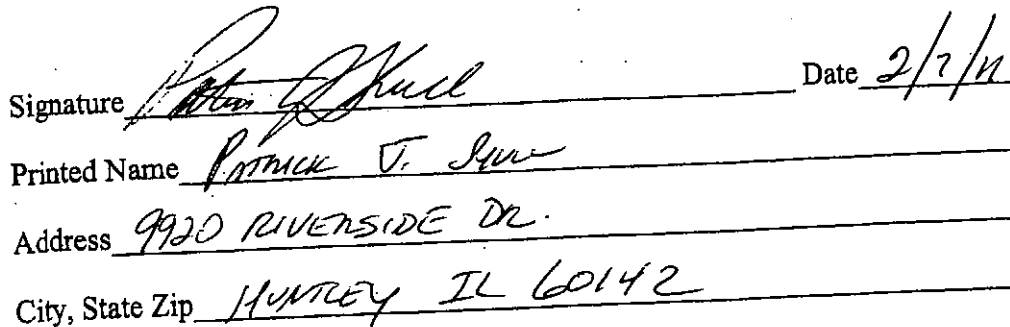 Signature Date 2/7/11
Printed Name Patrick J.
Address 9920 RIVERSIDE DR.
City, State Zip HUNTLEY IL 60142